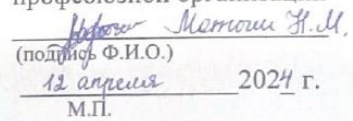 профсоюзной организации
Н.М.
(подпись Ф.И.О.)
12 апреля 2024 г.
М.П.